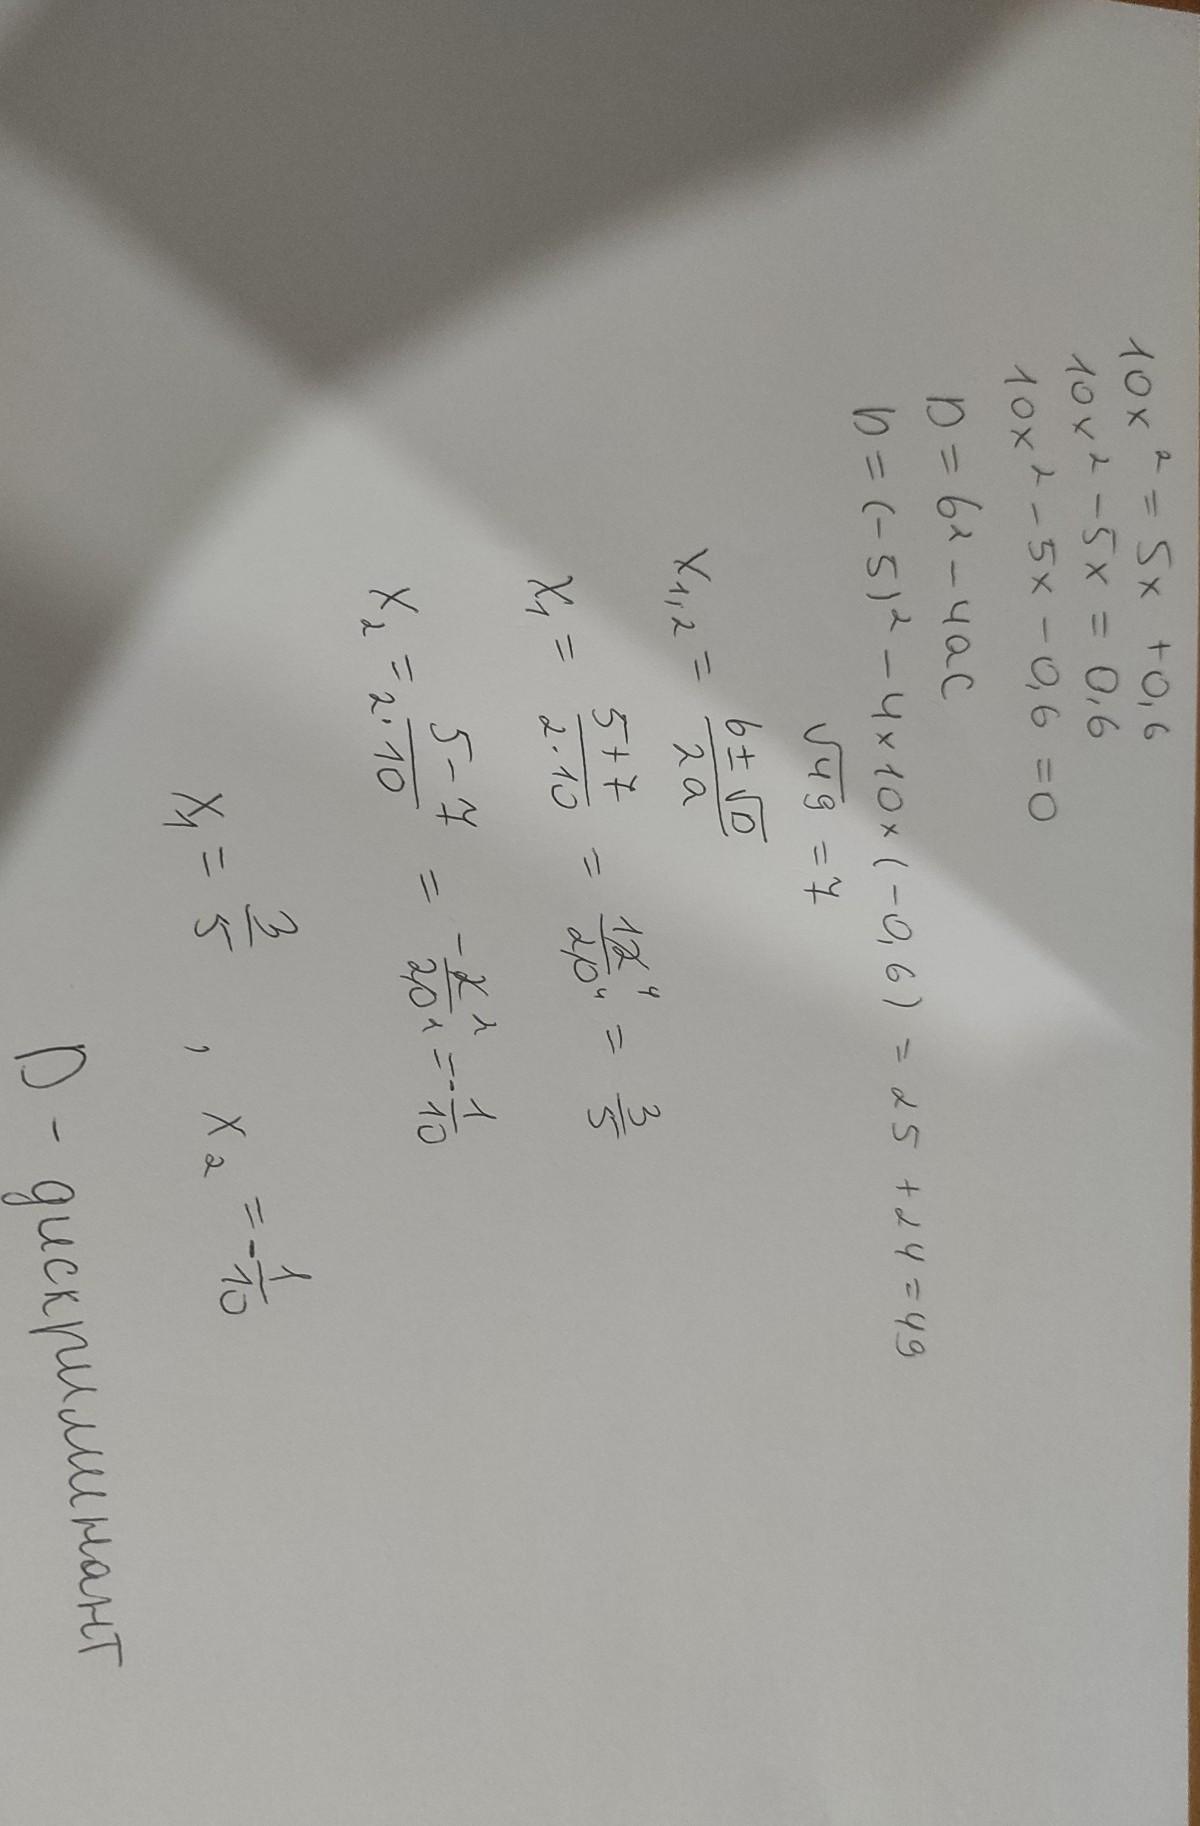 10x² = 5x + 0,6
10x² - 5x = 0,6
10x² - 5x - 0,6 = 0
D = b² - 4ac
D = (-5)² - 4 × 10 × (-0,6) = 25 + 24 = 49
√49 = 7
x₁,₂ = (b ± √D)/(2a)
x₁ = (5 + 7)/(2 · 10) = 12⁴/20⁴ = 3/5
x₂ = (5 - 7)/(2 · 10) = -2²/20² = -1/10
x₁ = 3/5 , x₂ = -1/10
D - дискриминант